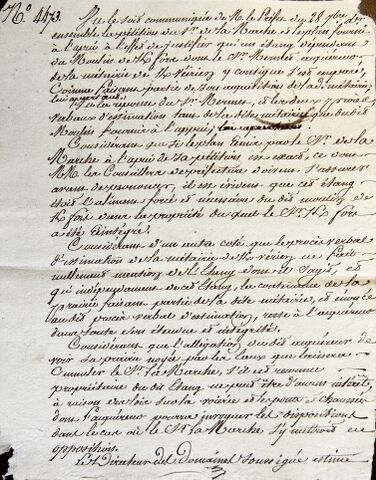 N.º 4473.
Vu le soit communiqué de M. le Préfet du 28
ensemble la pétition du Sr. de la Marche et le plan fourni
à l'apui à l'effet de justifier qu'un étang dépendant
du Moulin de K fors dont le Sr. Mermet acquéreur
de la métairie de K vérien y contigue s'est emparé,
comme faisant partie de son acquisition de la d. métairie
lui appartient.
Vu la réponse du Sr. Mermet, et les deux procès
verbaux d'estimation tant de la dite métairie que du dit
Moulin fournis à l'appui,
Considérant que si le plan émis par le Sr. de la
Marche à l'apui de sa pétition est exact, ce dont
MM. les Conseillers de préfecture doivent s'assurer
avant de prononcer, il est évident que cet étang
étoit l'aliment forcé et nécessaire du dit moulin de
K fois dans la propriété duquel le Sr. K fois
a été réintégré.
Considérant d'un autre coté que le procès verbal
d'estimation de la métairie de K vérien ne fait
nullement mention de l'étang dont il s'agit, et
qu'indépendamment de cet étang, la contenance de la
prairie faisant partie de la dite métairie, et énoncée
au dit procès verbal d'estimation, reste à l'acquéreur
dans toute son étendue et intégrité.
Considérant que l'allégation du dit acquéreur de
voir sa prairie noyée par les eaux que laissera
cumuler le Sr. la Marche, s'il est reconnu
propriétaire du dit étang ne peut être d'aucun intérêt,
à raison des lois sur la voierie et les ponts et chaussées
dont l'acquéreur pourra invoquer les dispositions
dans le cas où le Sr. la Marche s'y mettroit en
opposition.
Le Directeur des Domaines soussigné estime